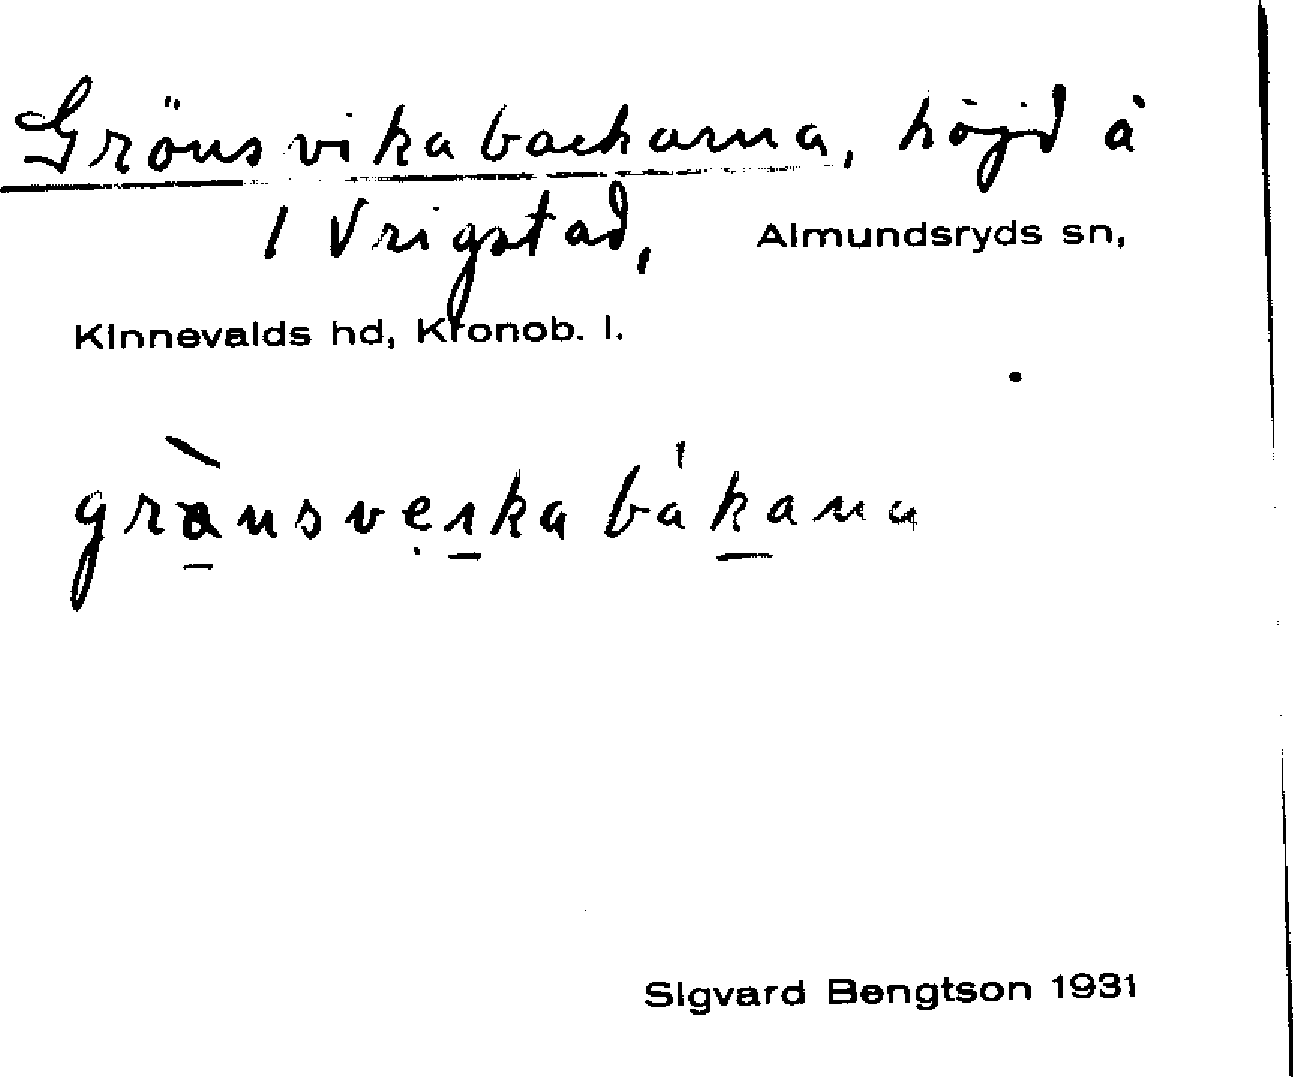 Grönsvikabackarna, höjd å
1 Vrigstad, Almundsryds sn,
Kinnevalds hd, Kronob. l.
grànsveıka bákana
Sigvard Bengtson 1931